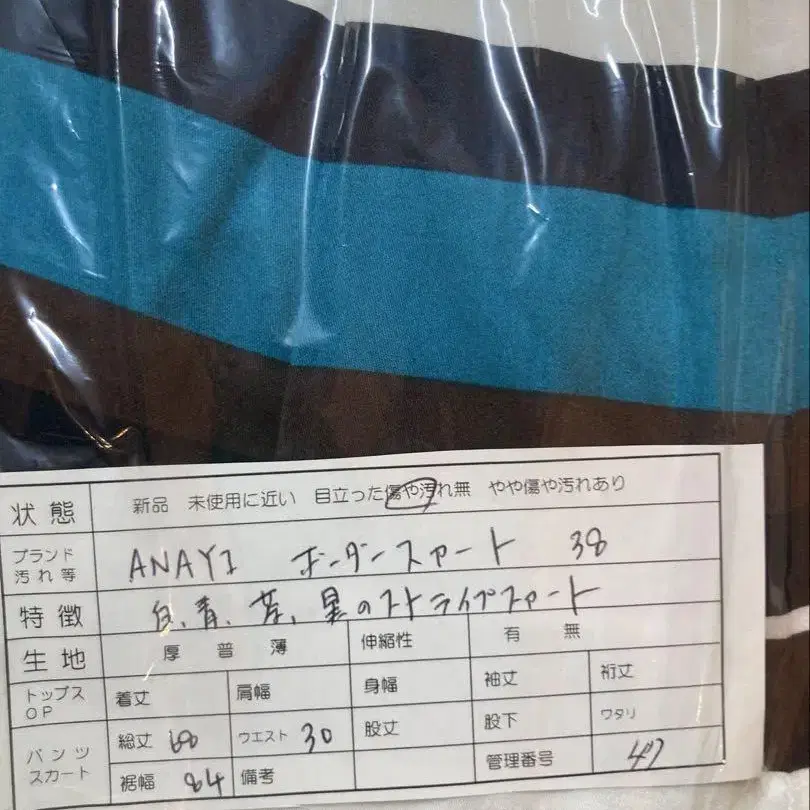 状態 新品 未使用に近い 目立った傷や汚れ無 やや傷や汚れあり
ブランド 汚れ等 ANAYI ボーダースカート 38
特徴 白、青、茶、黒のストライプスカート
生地 厚 普 薄 伸縮性 有 無
トップス OP 着丈 肩幅 身幅 袖丈 裄丈
パンツ スカート 総丈 60 ウエスト 30 股丈 股下 ワタリ
裾幅 84 備考 管理番号 47